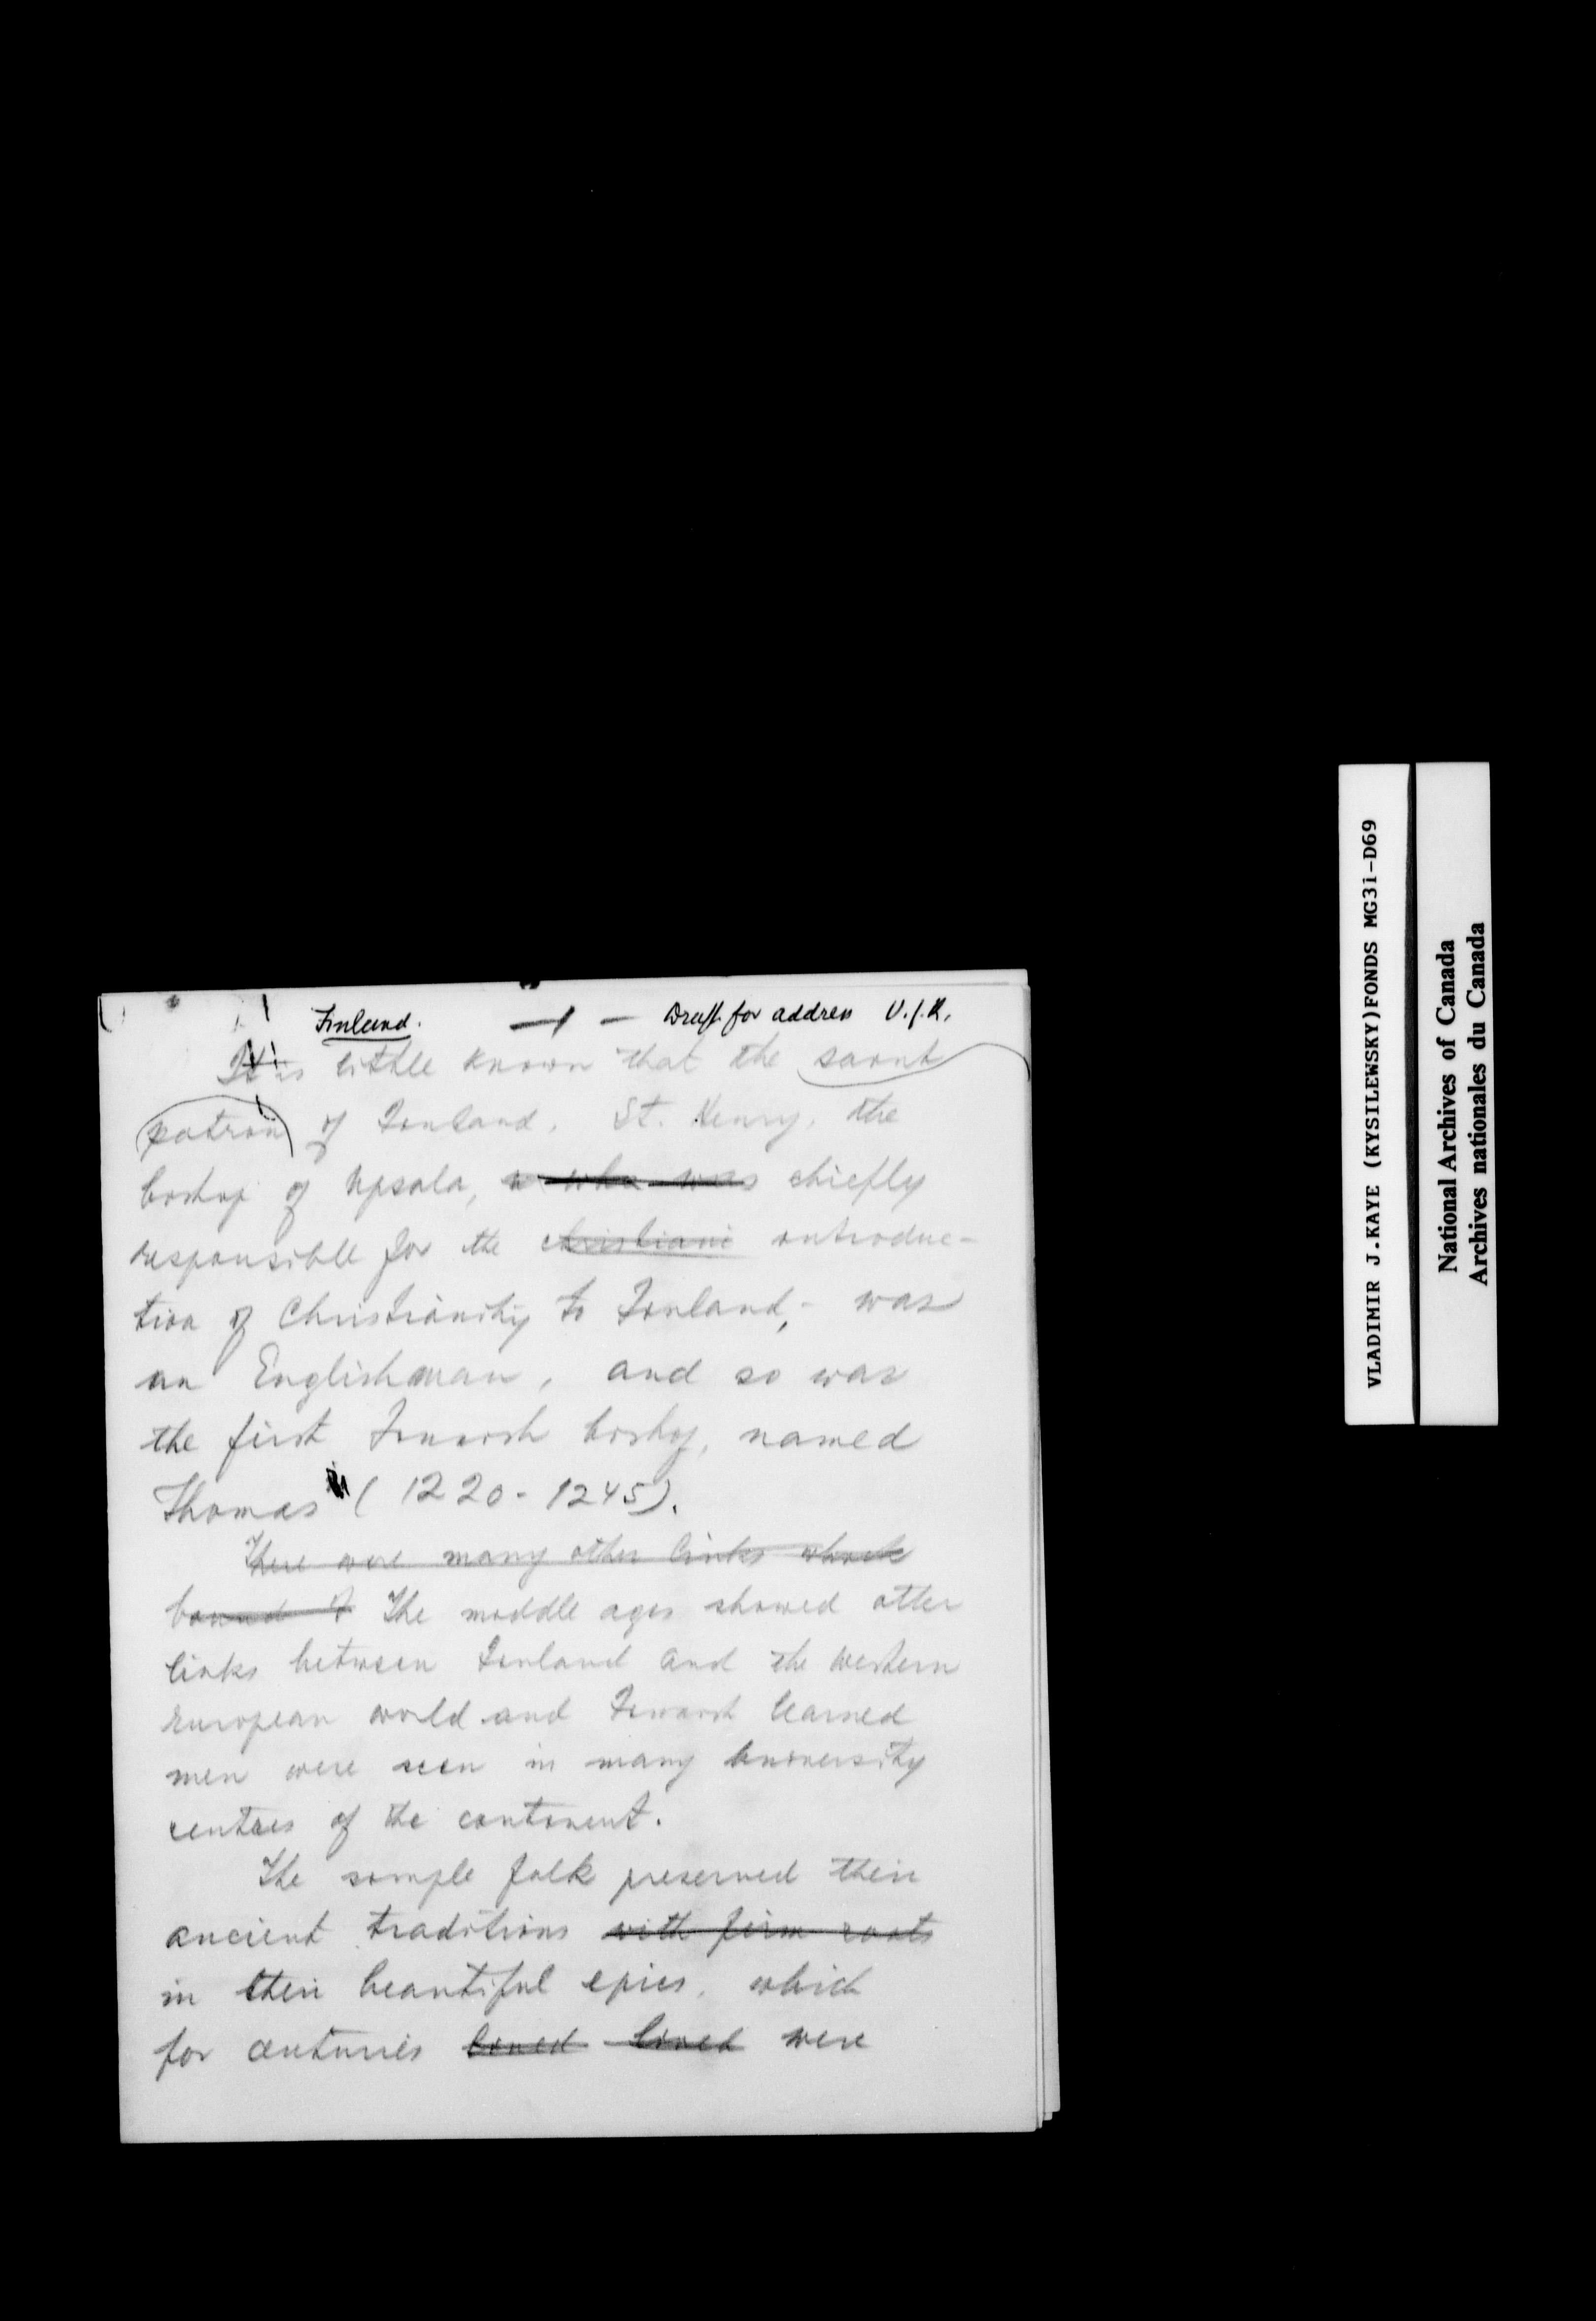 Finland. — 1 — Draft for address V.J.K.
It is little known that the saint
patron of Finland, St. Henry, the
bishop of Upsala, who was chiefly
responsible for the christiani introduc-
tion of Christianity to Finland, - was
an Englishman, and so was
the first Finnish bishop, named
Thomas (1220 - 1245).
There were many other links which
bound F The middle ages showed other
links between Finland and the western
European world and Finnish learned
men were seen in many university
centres of the continent.
The simple folk preserved their
ancient traditions with firm roots
in their beautiful epics, which
for centuries lived lived were
VLADIMIR J.KAYE (KYSILEWSKY)FONDS MG31-D69
National Archives of Canada
Archives nationales du Canada